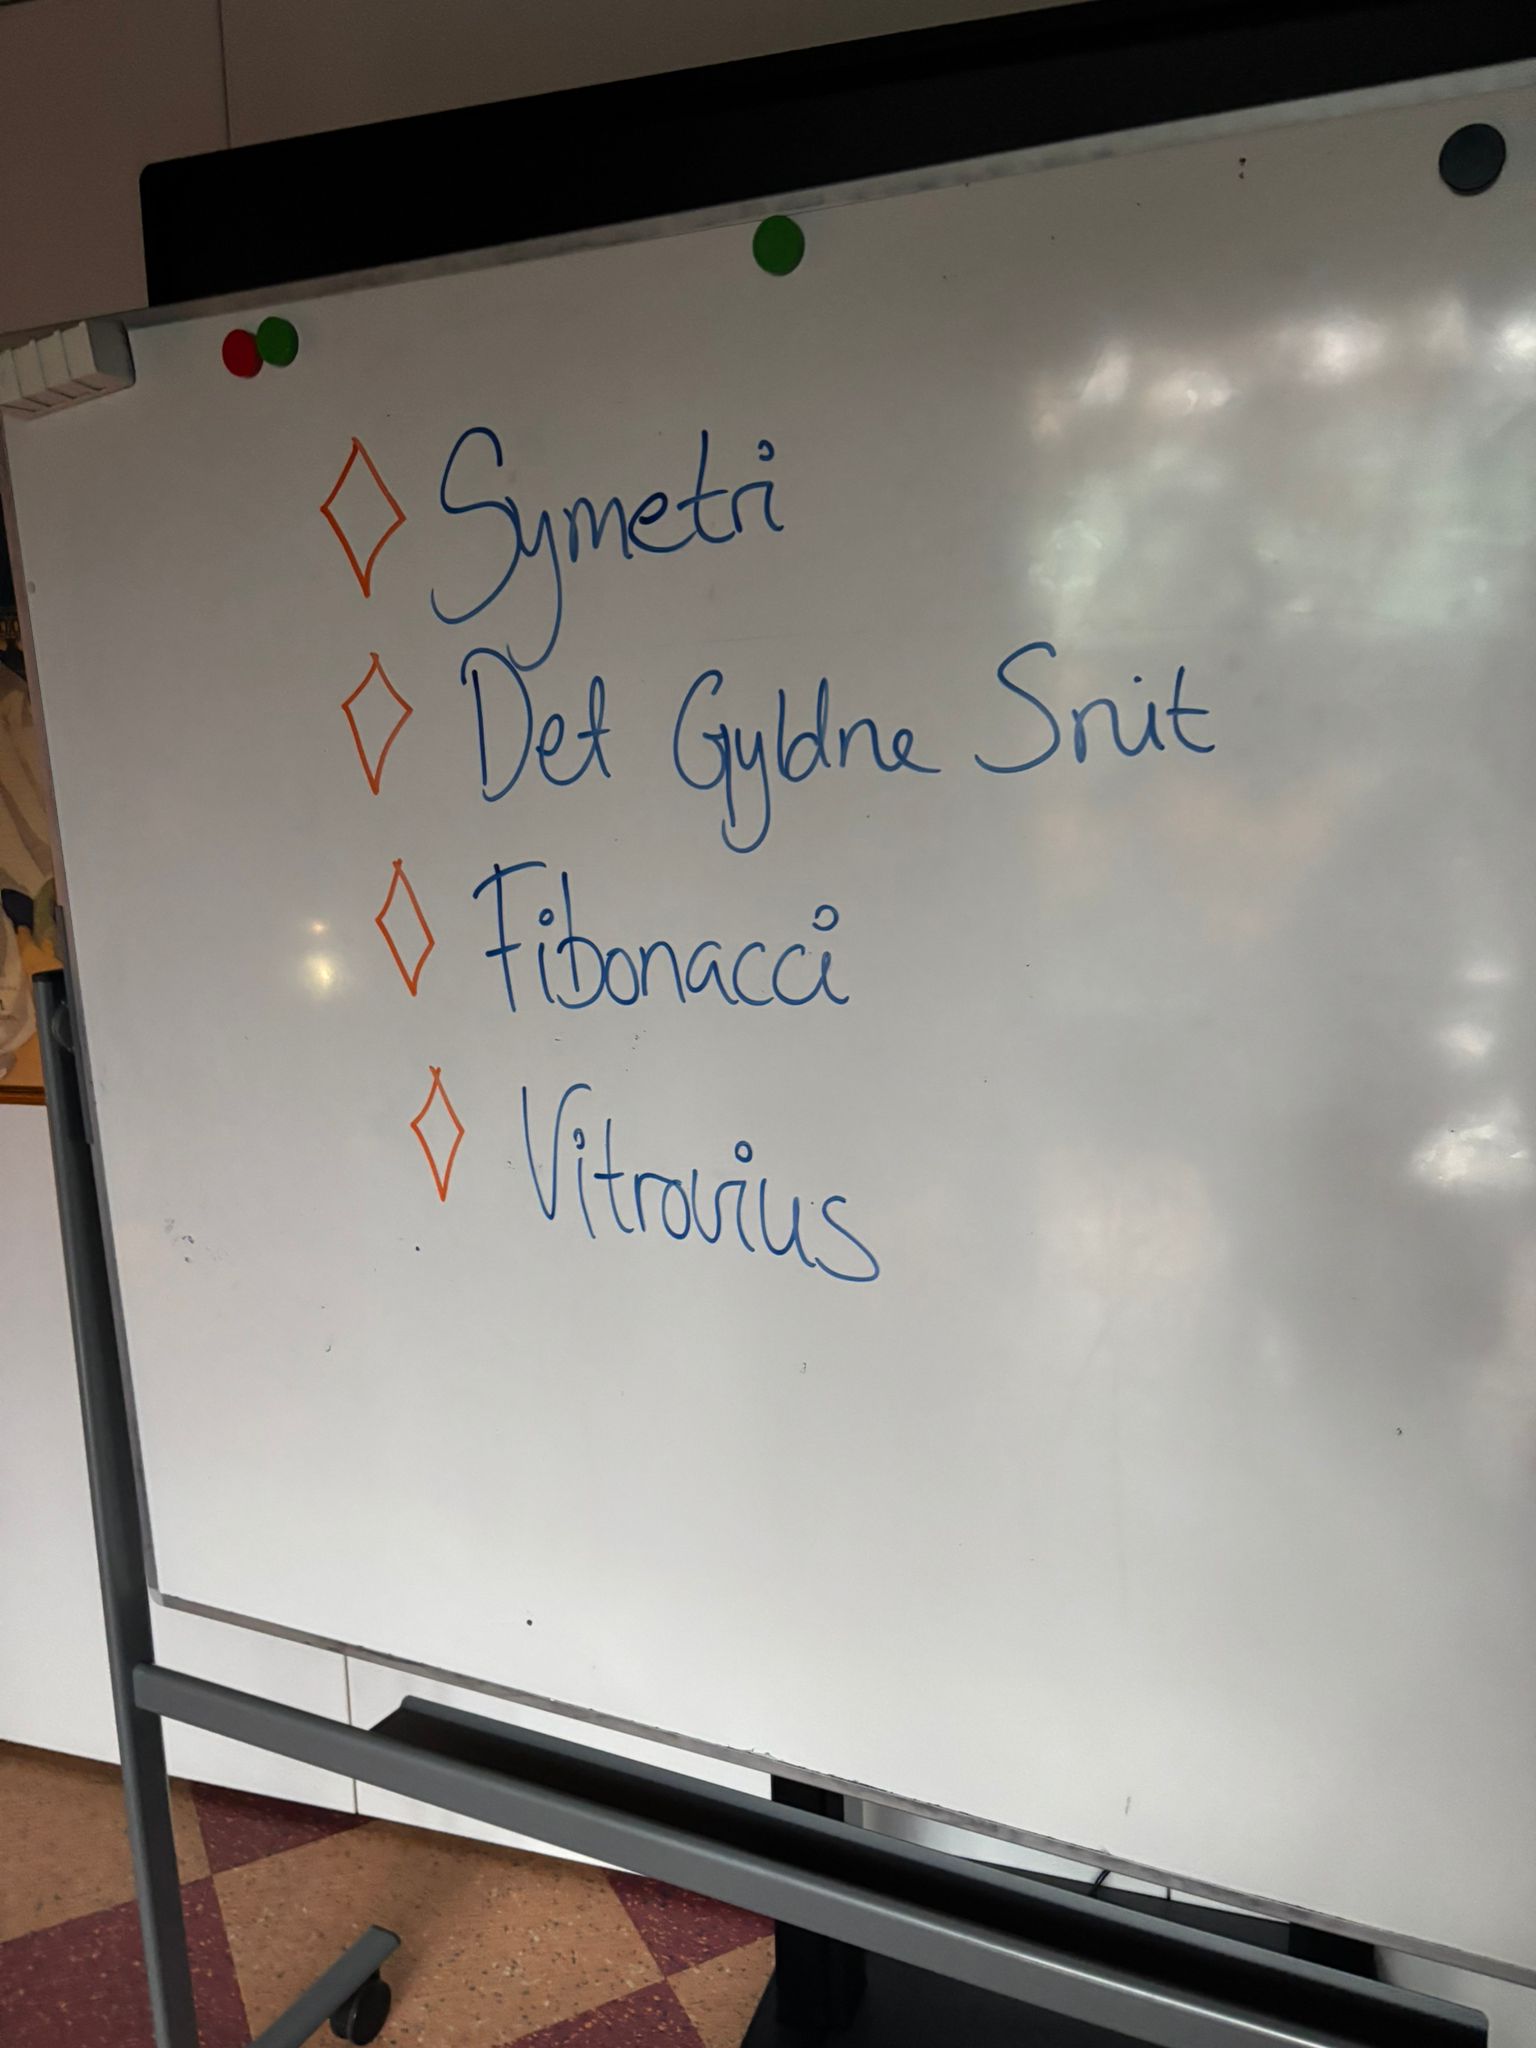 Symetri
Det Gyldne Snit
Fibonacci
Vitrovius